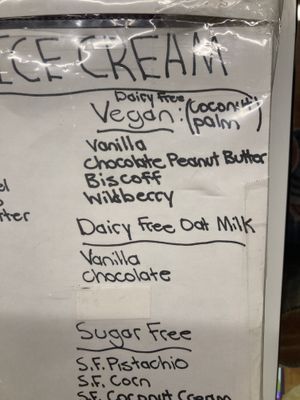 ICE CREAM
Dairy Free
Vegan: (Coconut
palm)
Vanilla
Chocolate Peanut Butter
Biscoff
Wildberry
Dairy Free Oat Milk
Vanilla
Chocolate
Sugar Free
S.F. Pistachio
S.F. Corn
S.F. Coconut Cream